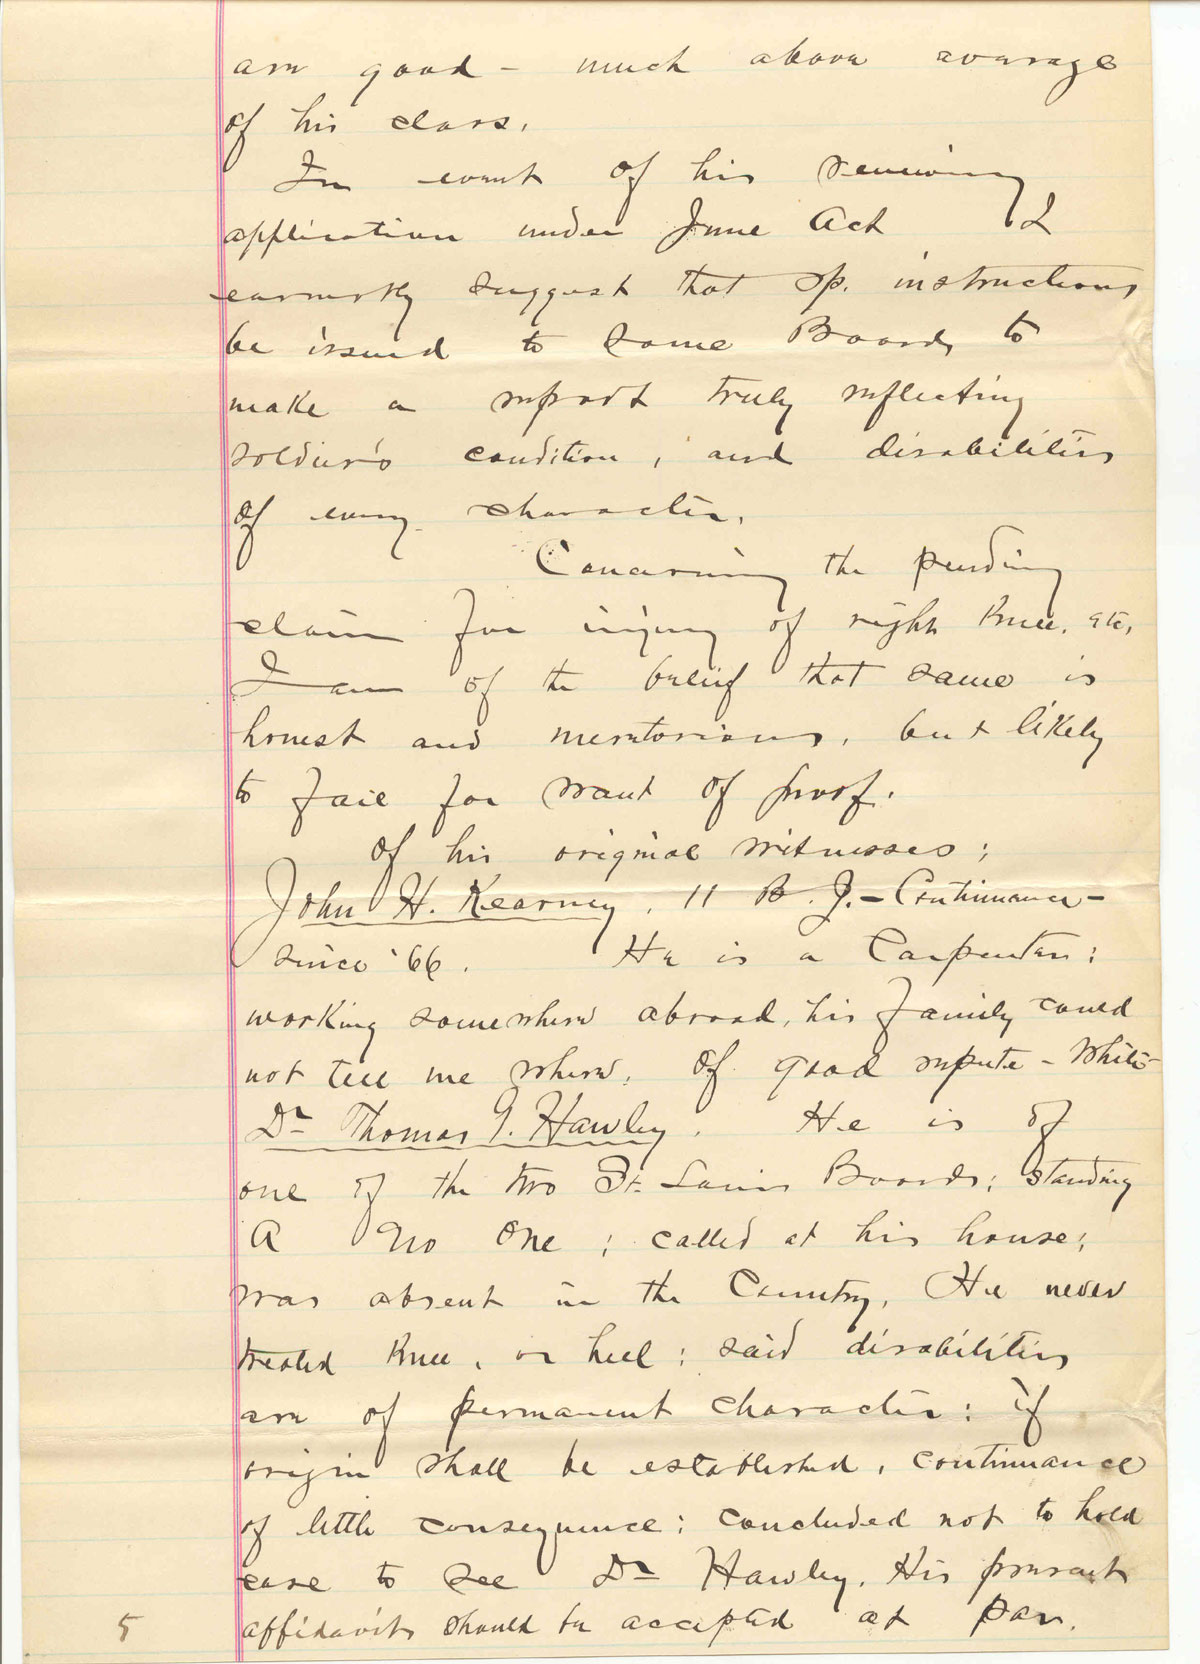 are good - much above average
of his class.
In event of his renewing
application under June Act I
earnestly suggest that sp. instructions
be issued to some Board, to
make a report truly reflecting
soldier's condition, and disabilities
of every character.
Concerning the pending
claim for injury of right knee. etc,
I am of the belief that same is
honest and meritorious, but likely
to fail for want of proof.
Of his original witnesses;
John H. Kearney, 11 B. J. - Continuance -
since '66. He is a Carpenter:
working somewhere abroad, his family could
not tell me where. Of good repute - White
Dr Thomas G. Hawley. He is of
one of the two St. Louis Boards; standing
A No One; called at his house;
was absent in the Country. He never
treated knee, or heel; said disabilities
are of permanent character: if
origin shall be established, continuance
of little consequence: concluded not to hold
case to see Dr Hawley. His present
affidavits should be accepted at par.
5